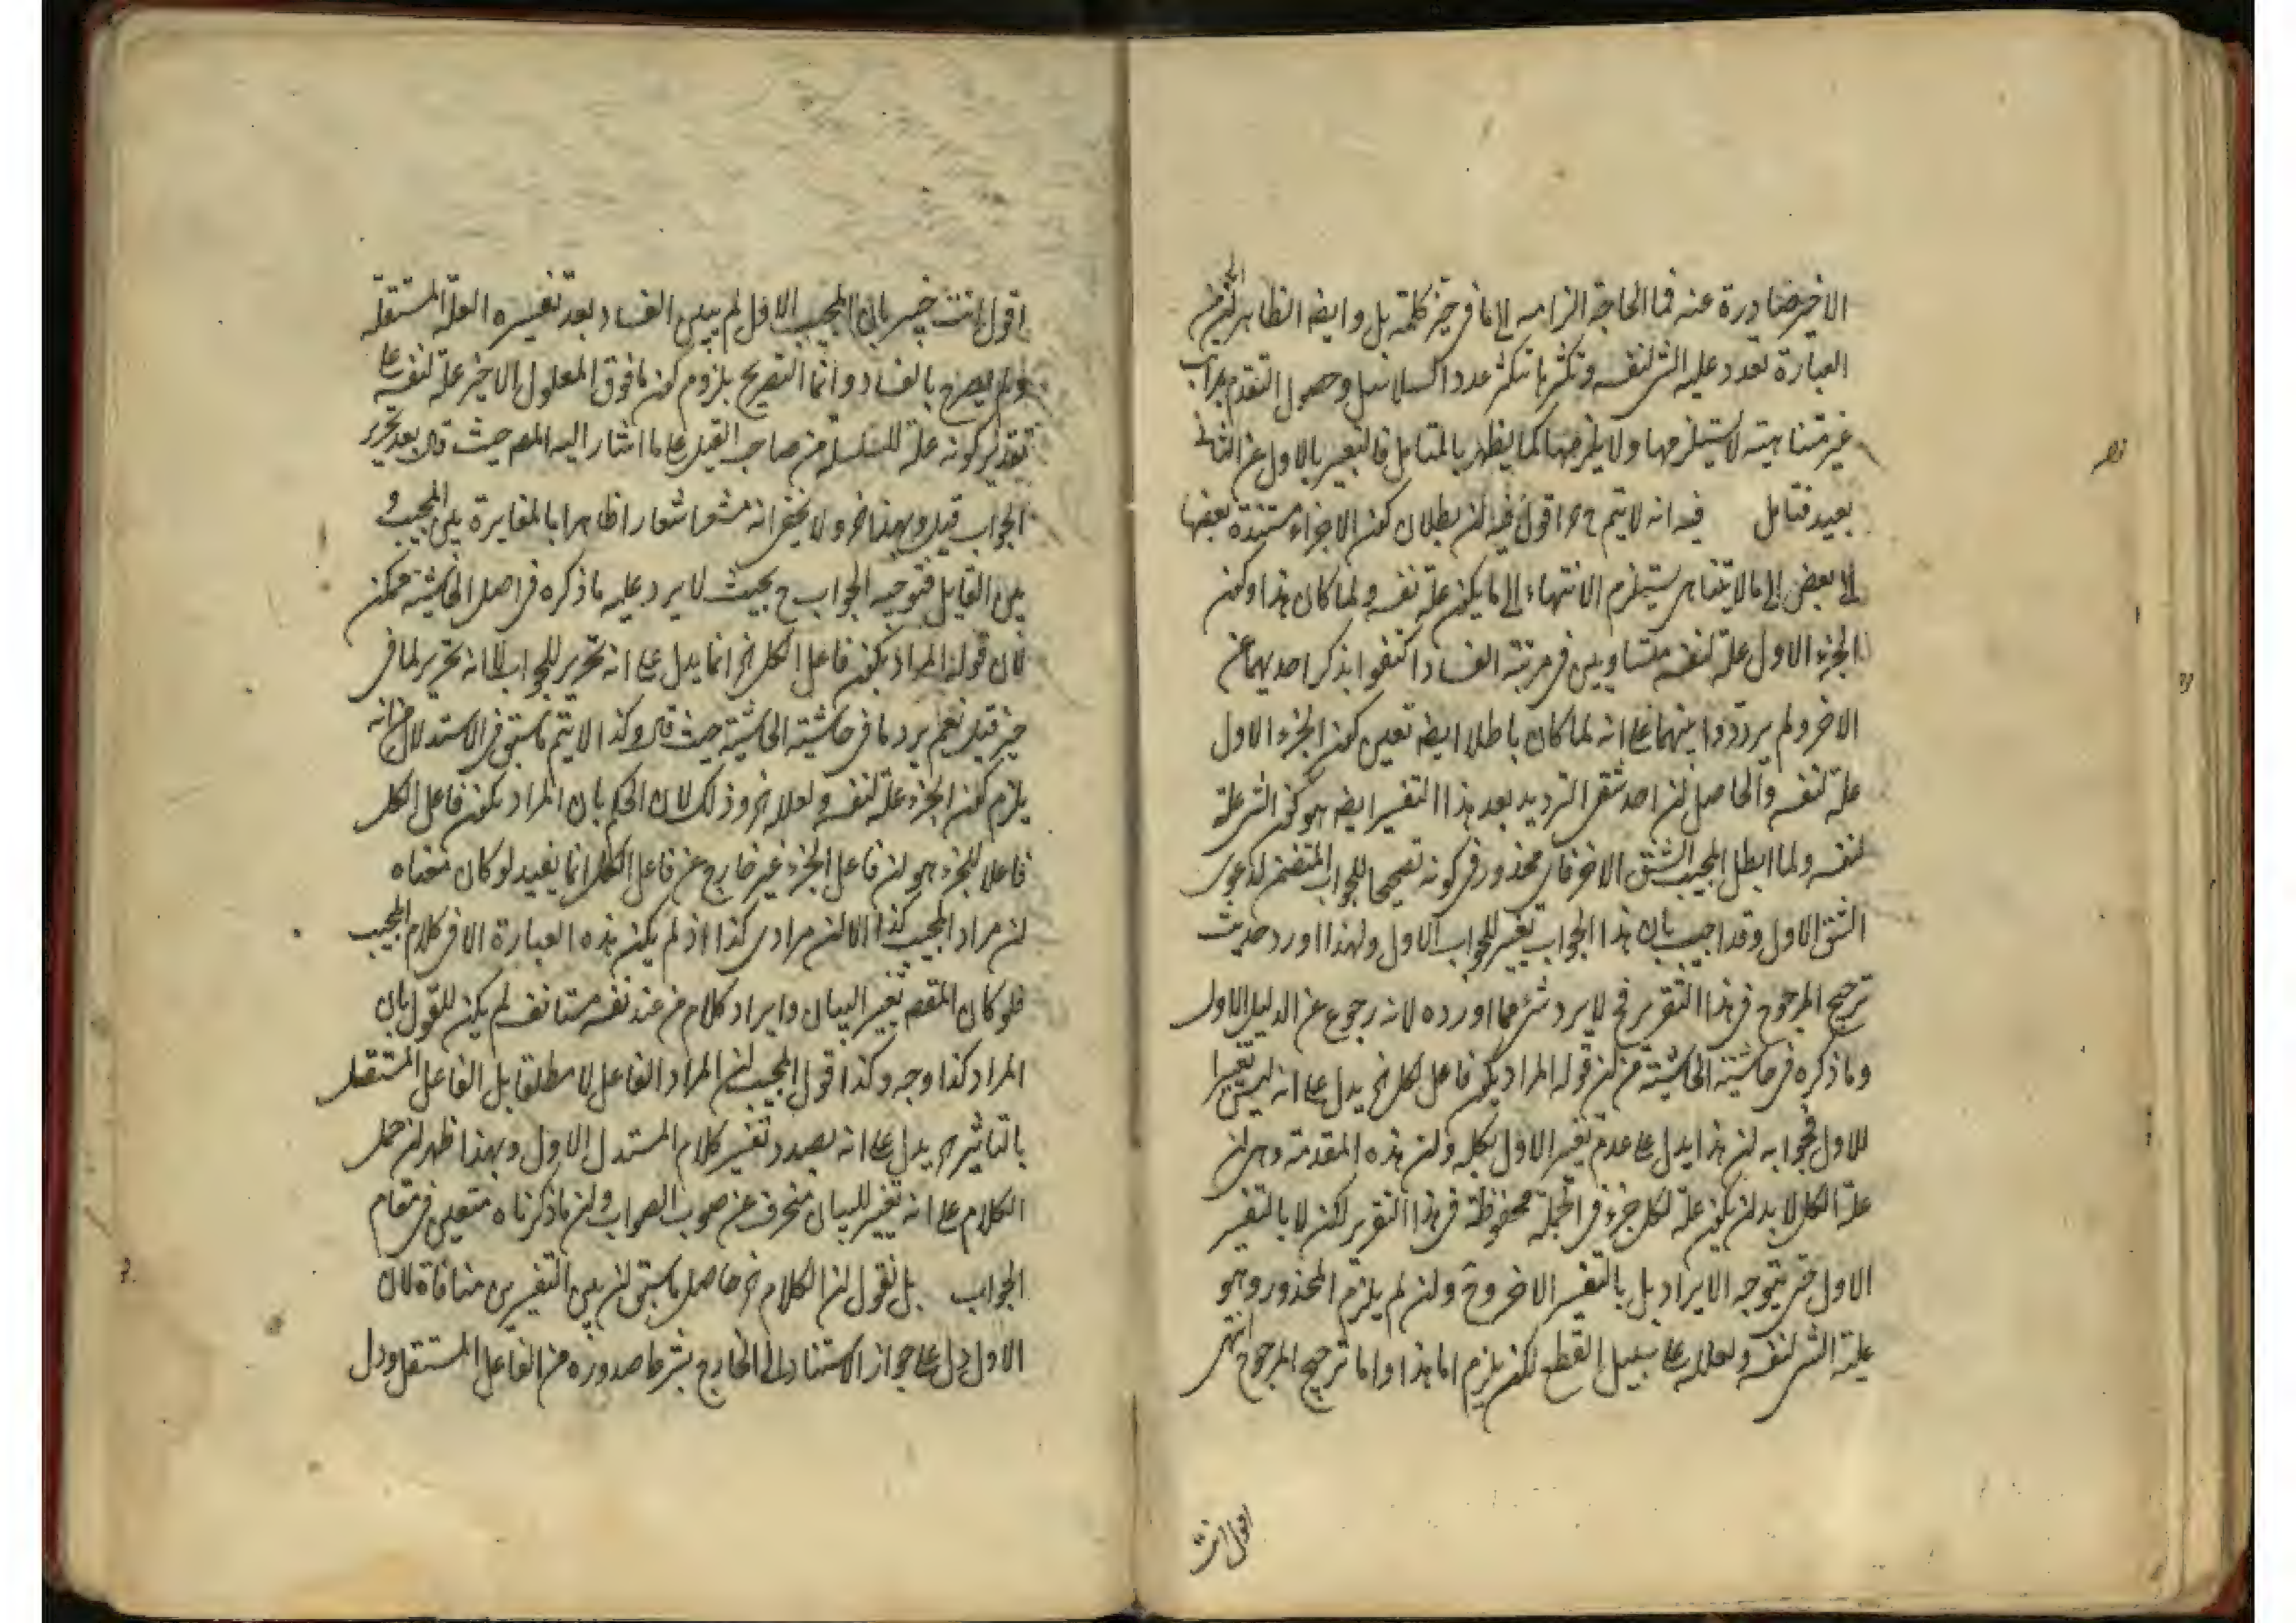 الاخير صادرة عنه فما الحاجة الزامه الى ما في حيز كلمة بل وايضا الظاهر
العبارة تعدد علية الشئ لنفسه وتكثرها بتكثر عدد السلاسل وحصول التقدم بمراتب
غير متناهية لا يستلزمها ولا يلزمها كما يظهر بالتامل فالتعبير بالاول عن الثانى
بعيد فتامل فيه انه لا يتم ح اقول فيه لن بطلان كون الاجزاء مستندة بعضها
الى بعض الى ما لا يتناهى يستلزم الانتهاء الى ما يكون علة نفسه ولما كان هذا وكون
الجزء الاول علة لنفسه متساويين في مرتبة الفساد اكتفوا بذكر احديهما عن
الاخر ولم يرددوا بينهما على انه لما كان باطلا ايضا تعين كون الجزء الاول
علة لنفسه والحاصل لن احد شقى الترديد بعد هذا التفسير ايضا هو كون الشئ علة
لنفسه ولما ابطل المجيب الشق الاخر فاى محذور في كونه تصحيحا للجواب المتضمن لدعوى
الشق الاول وقد اجيب بان هذا الجواب تغيير للجواب الاول ولهذا اورد حديث
ترجيح المرجوح في هذا التقرير فح لا يرد شئ مما اورده لانه رجوع عن الدليل الاول
وما ذكره في حاشية الحاشية من لن قوله المراد بكون فاعل الكل الخ يدل على انه ليس تغييرا
للاول فجوابه لن هذا يدل على عدم تغيير الاول بكله ولن هذه المقدمة وهى لن
علة الكل لا بد لن يكون علة لكل جزء في الجملة محفوظة في هذا التقرير لكن لا بالتفسير
الاول حتى يتوجه الايراد بل بالتفسير الاخر وح ولن لم يلزم المحذور وهو
علية الشئ لنفسه ولعلله على سبيل القطع لكن يلزم اما هذا واما ترجيح المرجوح انتهى
اقول انت
اقول انت خبير بان المجيب الاول لم يبين الفساد بعد تفسيره العلة المستقلة
ولم يصرح بالفساد وانما التصريح بلزوم كون ما فوق المعلول الاخير علة لنفسه على
تقدير كونه علة للسلسلة من صاحب القيل على ما اشار اليه المص حيث قال بعد تحرير
الجواب قيل وبهذا الخ ولا يخفى انه مشعر اشعارا ظاهرا بالمغايرة بين المجيب و
بين القايل فتوجيه الجواب ح بحيث لا يرد عليه ما ذكره في اصل الحاشية ممكن
فان قوله المراد بكون فاعل الكل الخ انما يدل على انه تحرير للجواب لا انه تحرير لما في
حيز قيل نعم يرد ما في حاشية الحاشية حيث قال وكذا لا يتم ما سبق في الاستدلال من انه
يلزم كون الجزء علة لنفسه ولعلله الخ وذلك لان الحكم بان المراد بكون فاعل الكل
فاعلا للجزء هو لن فاعل الجزء غير خارج عن فاعل الكل انما يفيد لو كان معناه
لن مراد المجيب كذا لا لن مرادى كذا اذ لم يكن هذه العبارة الا في كلام المجيب
فلو كان المقصد تغيير البيان وايراد كلام من عند نفسه مستانف لم يكن للقول بان
المراد كذا وجه وكذا قول المجيب لن المراد الفاعل لا مطلقا بل الفاعل المستقل
بالتاثير الخ يدل على انه بصدد تفسير كلام المستدل الاول وبهذا ظهر لن حمل
الكلام على انه تغيير للبيان منحرف عن صوب الصواب ولن ما ذكرناه متعين في مقام
الجواب بل نقول لن الكلام الخ حاصل ما سبق لن بين التفسيرين منافاة لان
الاول دل على جواز الاستناد الى الخارج بشرط صدوره من الفاعل المستقل ودل